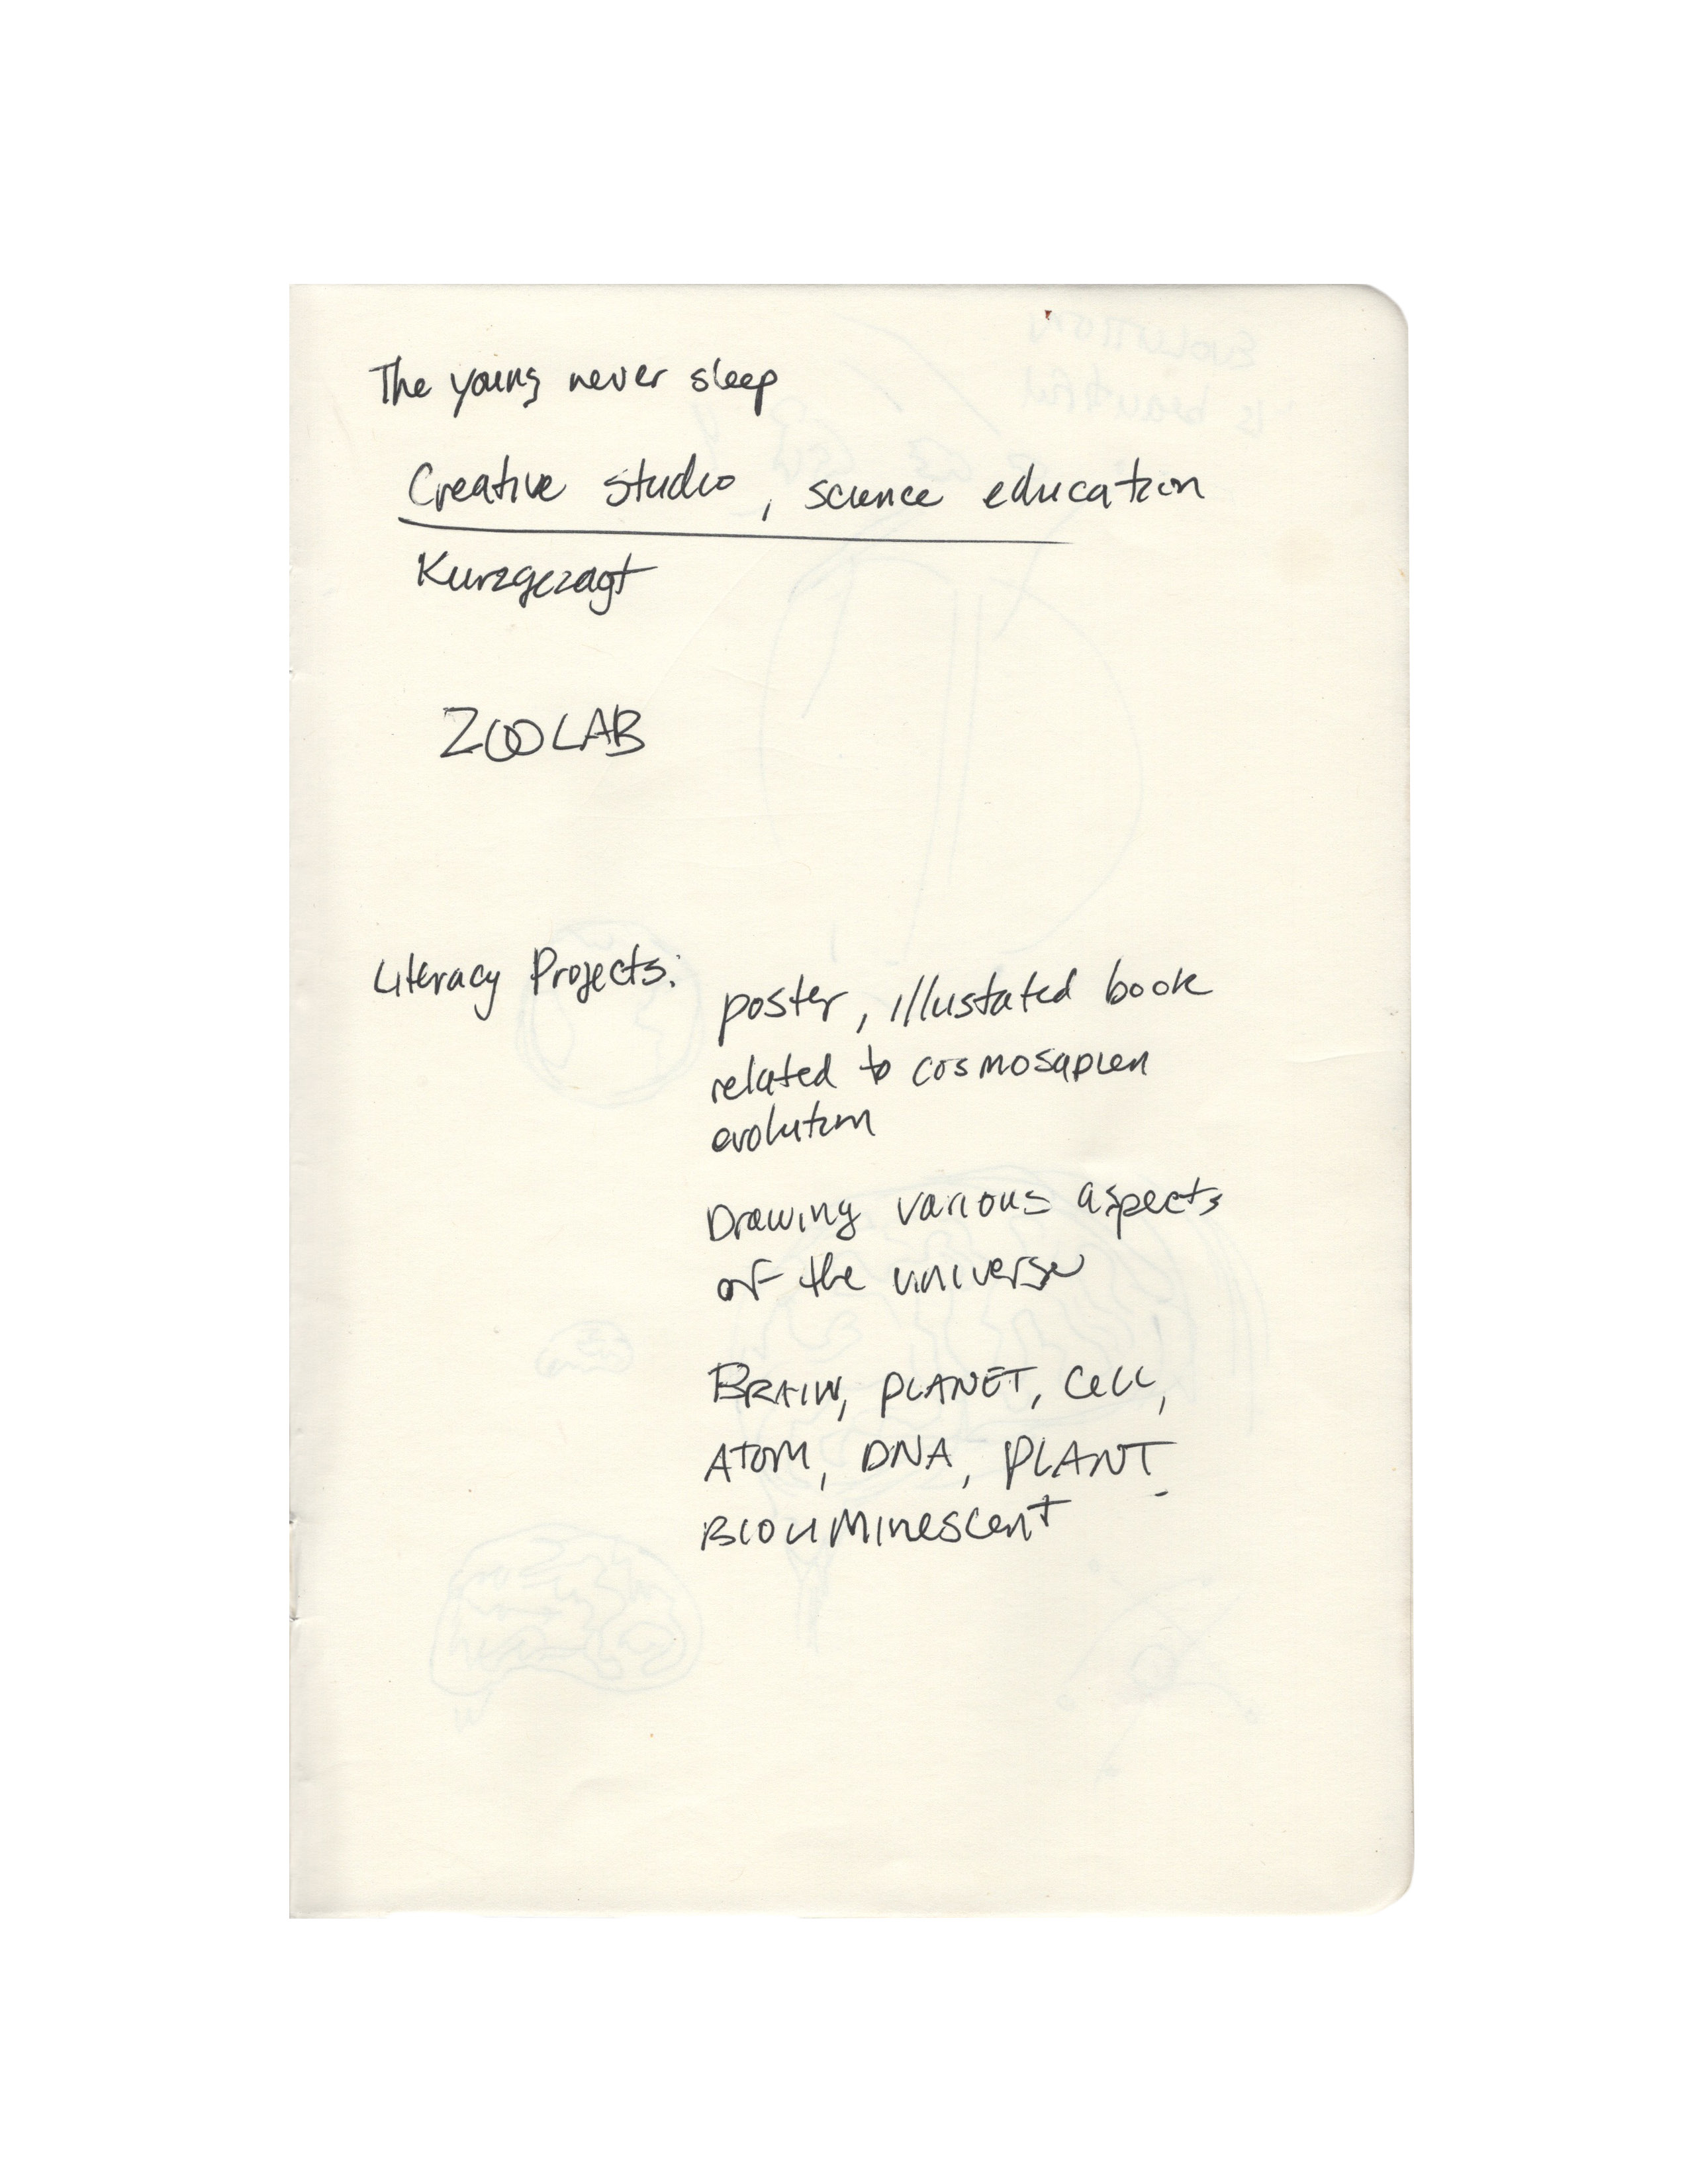 The young never sleep
Creative studio, science education
Kurzgezagt
ZOOLAB
Literacy Projects:
poster, illustated book
related to cosmosapien
evolution
Drawing various aspects
of the universe
BRAIN, PLANET, CELL,
ATOM, DNA, PLANT
BIOLUMINESCENT
Evolution
is beautiful